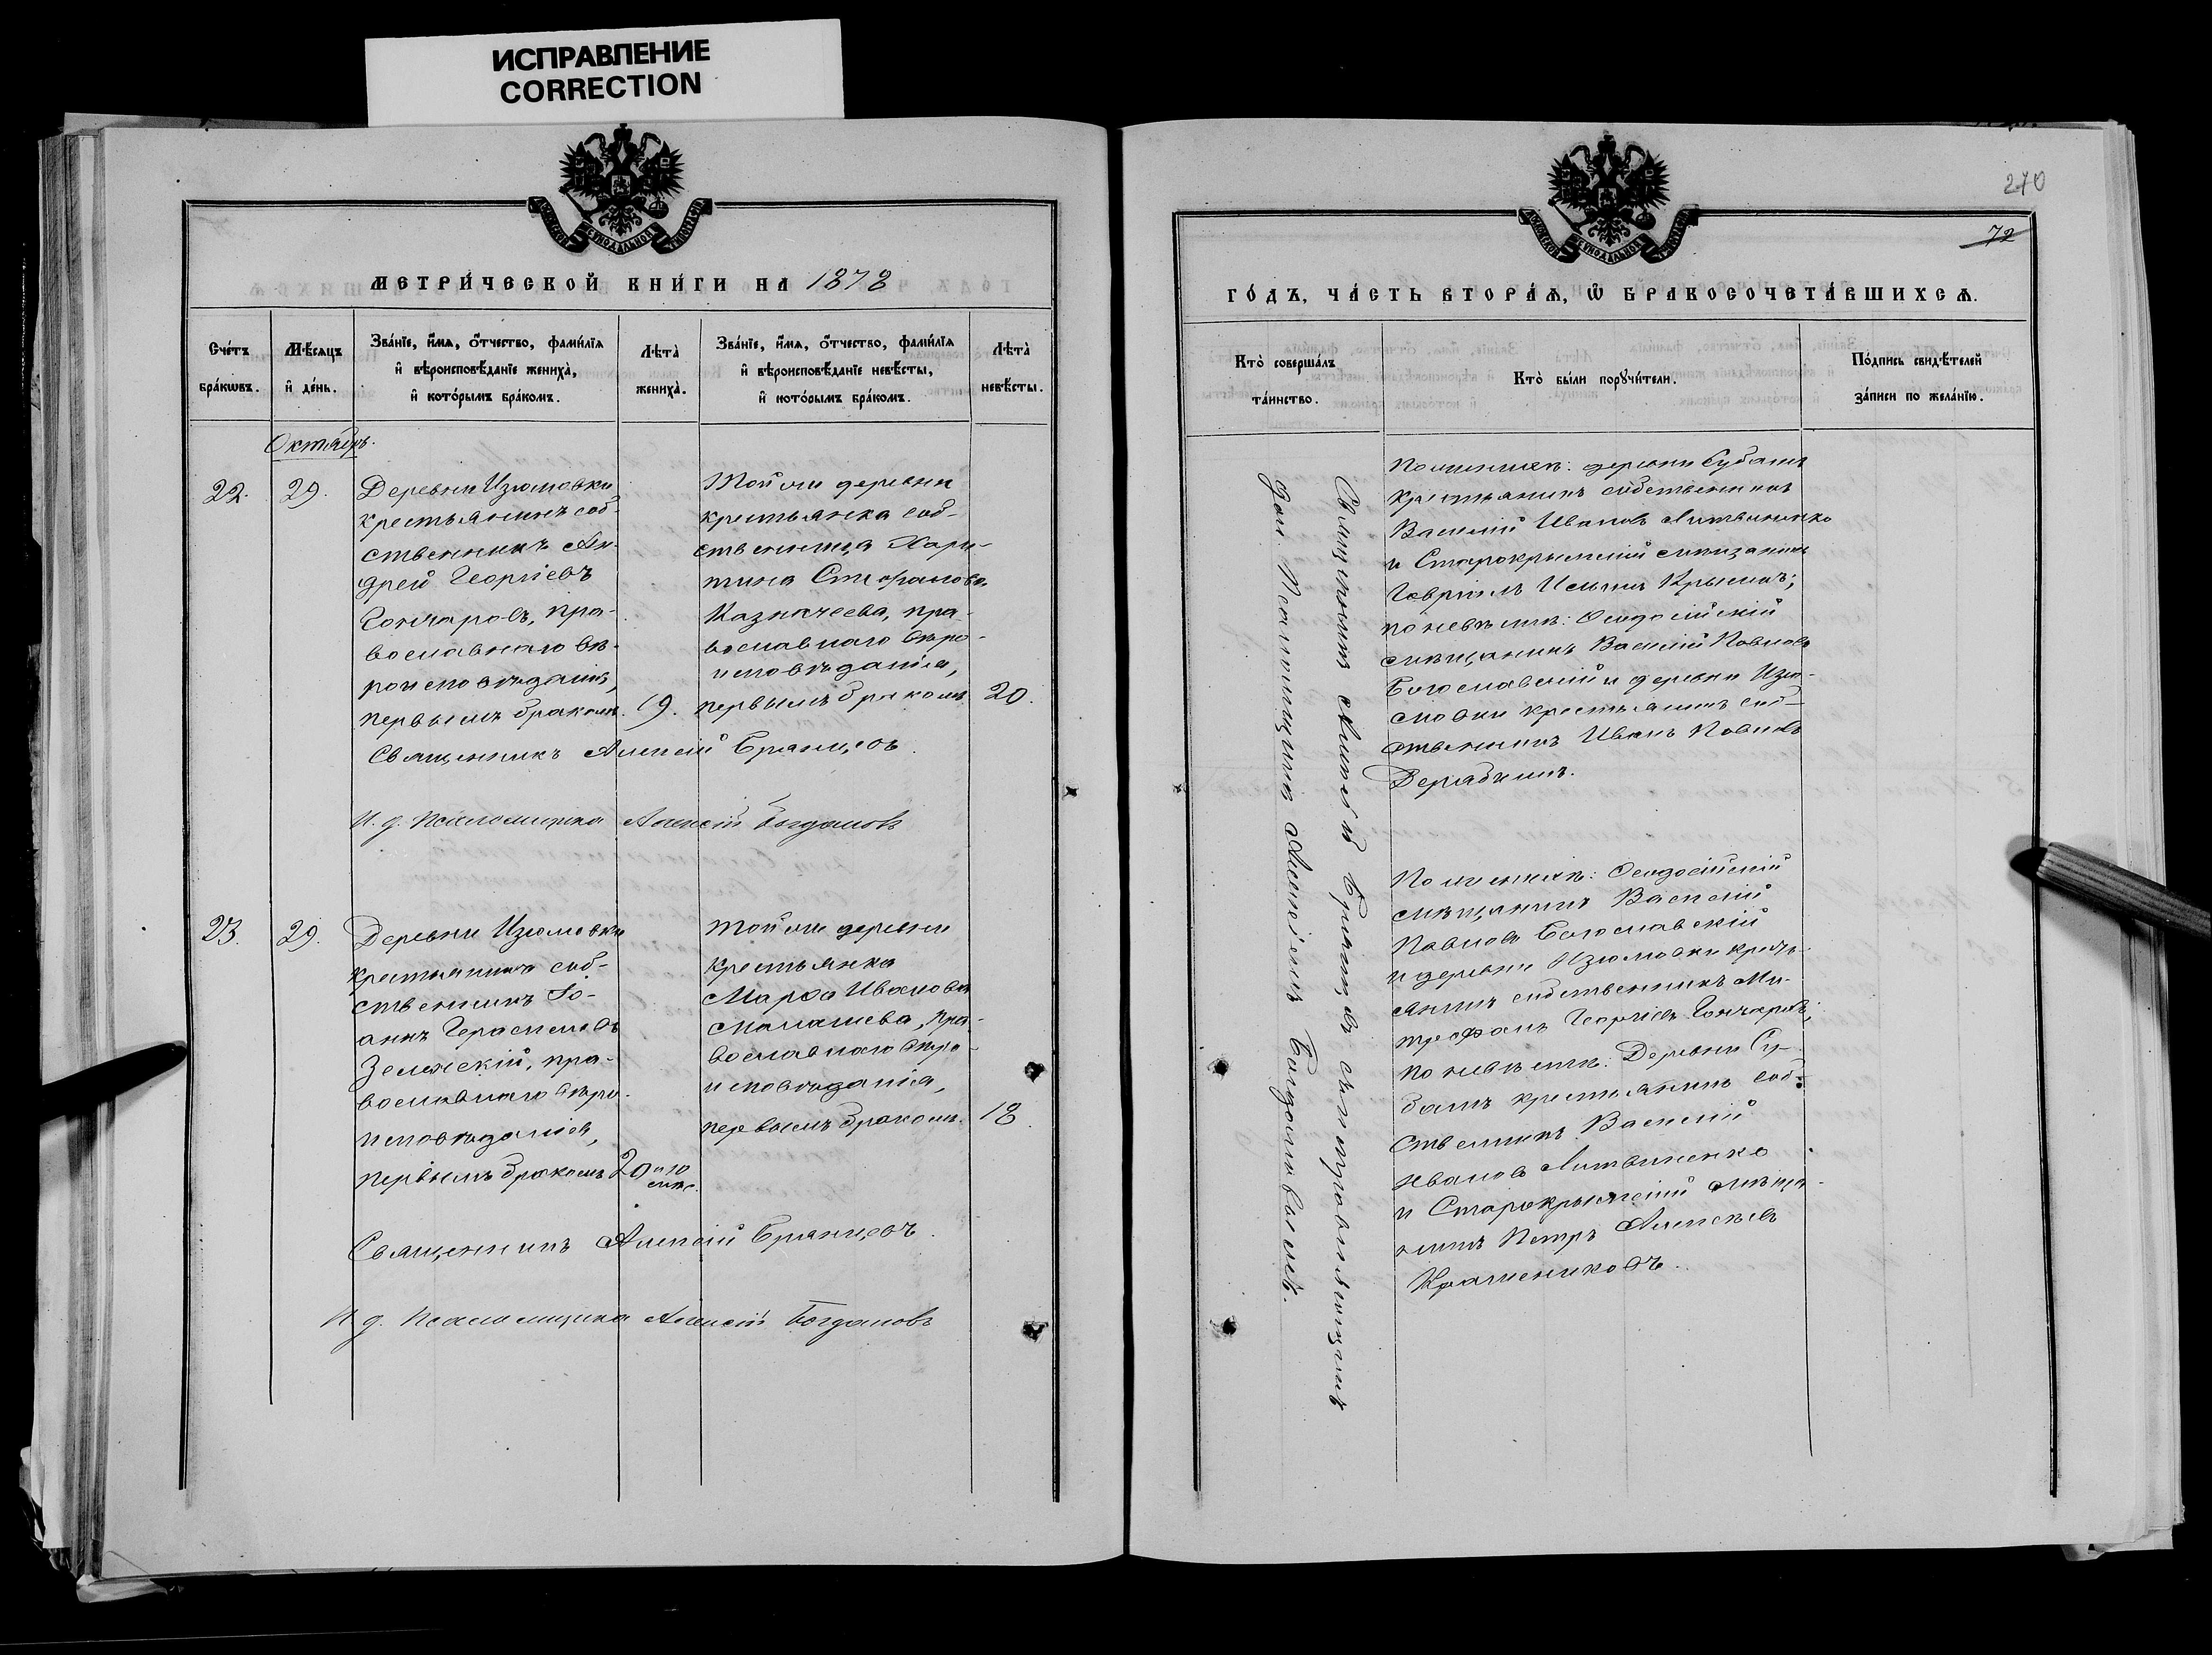 ИСПРАВЛЕНИЕ
CORRECTION
МЕТРИ́ЧЕСКОЙ КНИ́ГИ НА 1878
Сче́тъ бра́кωвъ.
Мѣ́сяцъ и҆ де́нь.
Зва́нїе, и҆́мѧ, ѻ҆́тчество, фами́лїѧ
и҆ вѣроисповѣ́данїе жениха̀,
и҆ кото́рымъ бра́комъ.
Лѣта̀ жениха̀.
Зва́нїе, и҆́мѧ, ѻ҆́тчество, фами́лїѧ
и҆ вѣроисповѣ́данїе невѣ́сты,
и҆ кото́рымъ бра́комъ.
Лѣта̀ невѣ́сты.
Октябрь.
22.
29.
Деревни Изюмовки
крестьянинъ соб-
ственникъ Ан-
дрей Георгіевъ
Гончаровъ, пра-
вославнаго вѣ-
роисповѣданія,
первымъ бракомъ.
19.
Той же деревни
крестьянка соб-
ственница Хари-
тина Стефанова
Казначеева, пра-
вославнаго вѣро-
исповѣданія,
первымъ бракомъ
20.
Священникъ Алексій Бранцевъ.
И. д. Псаломщика Алексій Богдановъ
23.
29.
Деревни Изюмовки
крестьянинъ соб-
ственникъ Іо-
аннъ Герасимовъ
Зеленскій, пра-
вославнаго вѣро-
исповѣданія,
первымъ бракомъ
20 и 10 мѣс.
Той же деревни
крестьянка
Марфа Иванова
Малашева, пра-
вославнаго вѣро-
исповѣданія,
первымъ бракомъ.
18.
Священникъ Алексій Бранцевъ.
И. д. Псаломщика Алексій Богдановъ
270
72
ГО́ДЪ, ЧА́СТЬ ВТОРА́Ѧ, Ѽ БРАКОСОЧЕТА́ВШИХСѦ.
Кто̀ соверша́лъ та́инство.
Кто̀ бы́ли порꙋчи́тели.
По́дпись свидѣ́телей
за́писи по жела́нїю.
Священникъ Алексѣй Бранцевъ съ исправляющимъ
дол. Псаломщика Алексѣемъ Богдановымъ.
По женихѣ: деревни Субашъ
крестьянинъ собственникъ
Василій Ивановъ Литвиненко
и Старокрымскій мѣщанинъ
Гавріилъ Ильинъ Крымовъ;
по невѣстѣ: Ѳеодосійскій
мѣщанинъ Василій Павловъ
Богославскій и деревни Изю-
мовки крестьянинъ соб-
ственникъ Иванъ Павловъ
Дерябкинъ.
По женихѣ: Ѳеодосійскій
мѣщанинъ Василій
Павловъ Богославскій
и деревни Изюмовки кресть-
янинъ собственникъ Ми-
трофанъ Георгіевъ Гончаровъ;
по невѣстѣ: Деревни Су-
башъ крестьянинъ соб-
ственникъ Василій
Ивановъ Литвиненко
и Старокрымскій мѣща-
нинъ Петръ Алексѣевъ
Крашениковъ.